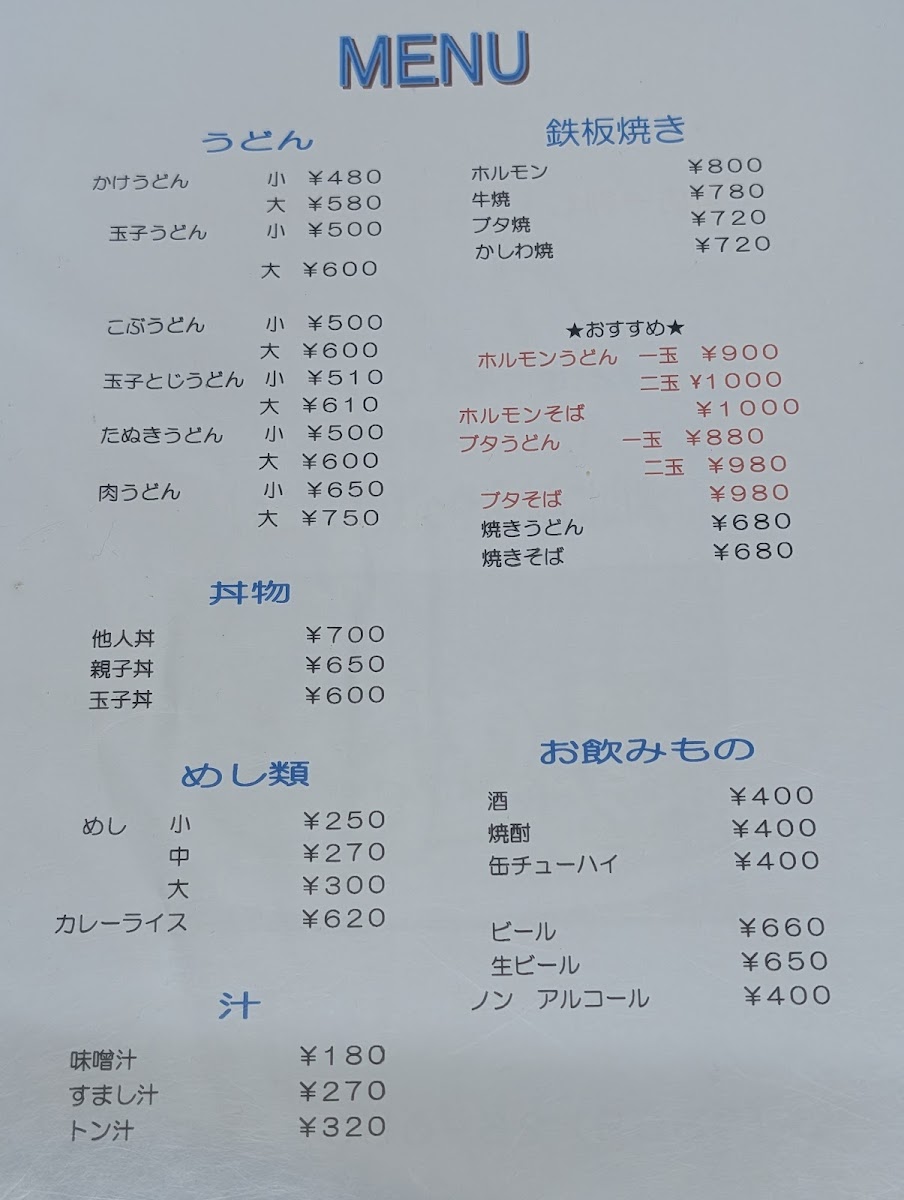 MENU
うどん
かけうどん 小 ¥480
大 ¥580
玉子うどん 小 ¥500
大 ¥600
こぶうどん 小 ¥500
大 ¥600
玉子とじうどん 小 ¥510
大 ¥610
たぬきうどん 小 ¥500
大 ¥600
肉うどん 小 ¥650
大 ¥750
丼物
他人丼 ¥700
親子丼 ¥650
玉子丼 ¥600
めし類
めし 小 ¥250
中 ¥270
大 ¥300
カレーライス ¥620
汁
味噌汁 ¥180
すまし汁 ¥270
トン汁 ¥320
鉄板焼き
ホルモン ¥800
牛焼 ¥780
ブタ焼 ¥720
かしわ焼 ¥720
★おすすめ★
ホルモンうどん 一玉 ¥900
二玉 ¥1000
ホルモンそば ¥1000
ブタうどん 一玉 ¥880
二玉 ¥980
ブタそば ¥980
焼きうどん ¥680
焼きそば ¥680
お飲みもの
酒 ¥400
焼酎 ¥400
缶チューハイ ¥400
ビール ¥660
生ビール ¥650
ノン アルコール ¥400